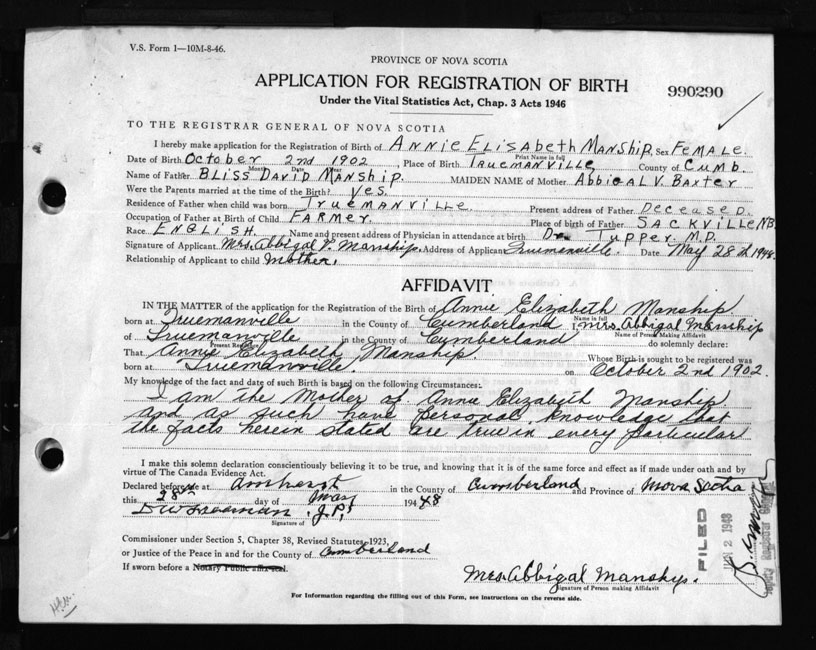 V.S. Form 1—10M-8-46.
PROVINCE OF NOVA SCOTIA
APPLICATION FOR REGISTRATION OF BIRTH
990290
Under the Vital Statistics Act, Chap. 3 Acts 1946
TO THE REGISTRAR GENERAL OF NOVA SCOTIA
I hereby make application for the Registration of Birth of ANNIE ELISABETH MANSHIP, Sex FEMALE.
Print Name in full
Date of Birth October 2nd 1902 , Place of Birth TRUEMANVILLE, County of CUMB.
Month Date Year
Name of Father BLISS DAVID MANSHIP. MAIDEN NAME of Mother ABBIGAL V. BAXTER
Were the Parents married at the time of the Birth? YES.
Residence of Father when child was born TRUEMANVILLE Present address of Father DECEASED.
Occupation of Father at Birth of Child FARMER. Place of birth of Father SACKVILLE NB.
Race ENGLISH. Name and present address of Physician in attendance at birth Dr. TUPPER M.D.
Signature of Applicant Mrs Abbigal V. Manship. Address of Applicant Truemanville. Date May 28th 1948.
Relationship of Applicant to child Mother.
AFFIDAVIT
IN THE MATTER of the application for the Registration of the Birth of Annie Elizabeth Manship
Name in full
born at Truemanville in the County of Cumberland I, Mrs. Abbigal Manship
Name of Person Making Affidavit
of Truemanville in the County of Cumberland do solemnly declare:
Present Residence
That Annie Elizabeth Manship. Whose Birth is sought to be registered was
born at Truemanville. on October 2nd 1902.
My knowledge of the fact and date of such Birth is based on the following Circumstances:
I am the Mother of Annie Elizabeth Manship
and as such have personal knowledge that
the facts herein stated are true in every particular
I make this solemn declaration conscientiously believing it to be true, and knowing that it is of the same force and effect as if made under oath and by
virtue of The Canada Evidence Act.
Declared before me at Amherst in the County of Cumberland and Province of Nova Scotia
this 28th day of May 1948
D W Freeman J.P.
Signature of
Commissioner under Section 5, Chapter 38, Revised Statutes, 1923,
or Justice of the Peace in and for the County of Cumberland
If sworn before a Notary Public affix seal.
Mrs. Abbigal Manship.
Signature of Person making Affidavit
For Information regarding the filling out of this Form, see instructions on the reverse side.
FILED
JUN 2 1948